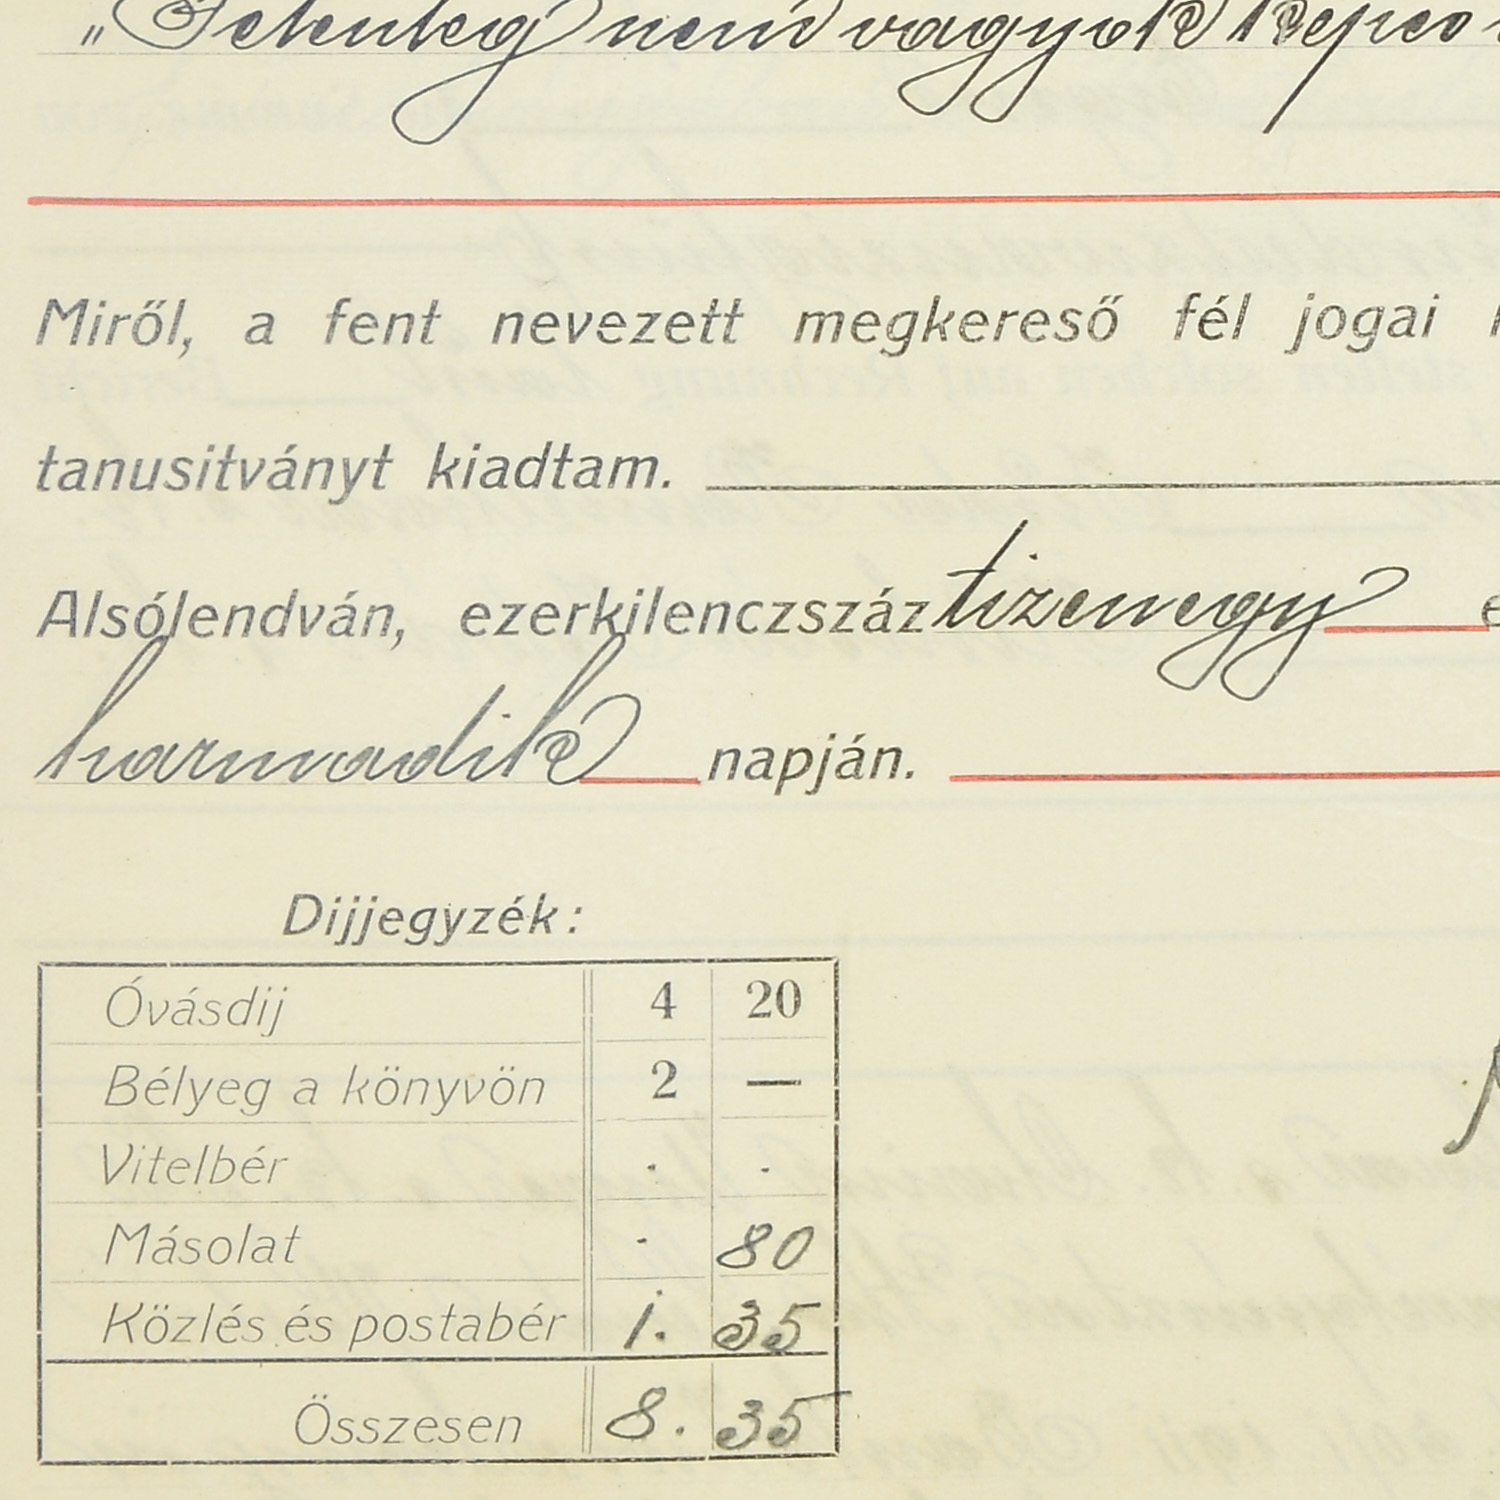 „Jelenleg nem vagyok képes
Miről, a fent nevezett megkereső fél jogai
tanusitványt kiadtam.
Alsólendván, ezerkilenczszáz tizenegy
harmadik napján.
Dijjegyzék:
Óvásdij 4 20
Bélyeg a könyvön 2 —
Vitelbér . .
Másolat · 80
Közlés és postabér 1. 35
Összesen 8. 35